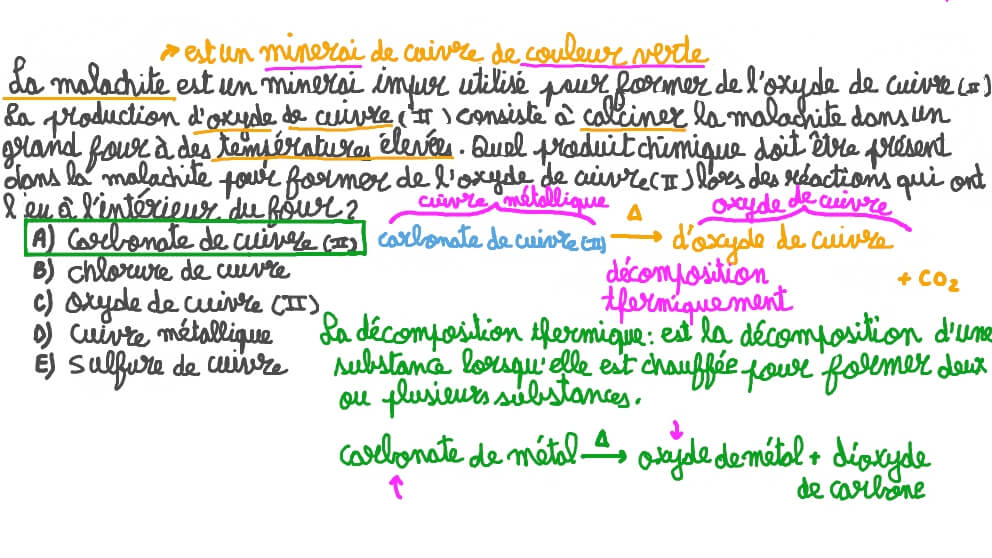 est un minerai de cuivre de couleur verte
La malachite est un minerai impur utilisé pour former de l'oxyde de cuivre (II)
La production d'oxyde de cuivre (II) consiste à calciner la malachite dans un
grand four à des températures élevées. Quel produit chimique doit être présent
dans la malachite pour former de l'oxyde de cuivre (II) lors des réactions qui ont
l eu à l'intérieur du four?
cuivre métallique
Δ
oxyde de cuivre
A) Carbonate de cuivre (II)
carbonate de cuivre (II) → d'oxyde de cuivre
+ CO₂
décomposition
thermiquement
B) chlorure de cuivre
C) Oxyde de cuivre (II)
D) Cuivre métallique
E) Sulfure de cuivre
La décomposition thermique: est la décomposition d'une
substance lorsqu'elle est chauffée pour former deux
ou plusieurs substances.
carbonate de métal Δ→ oxyde de métal + dioxyde
de carbone